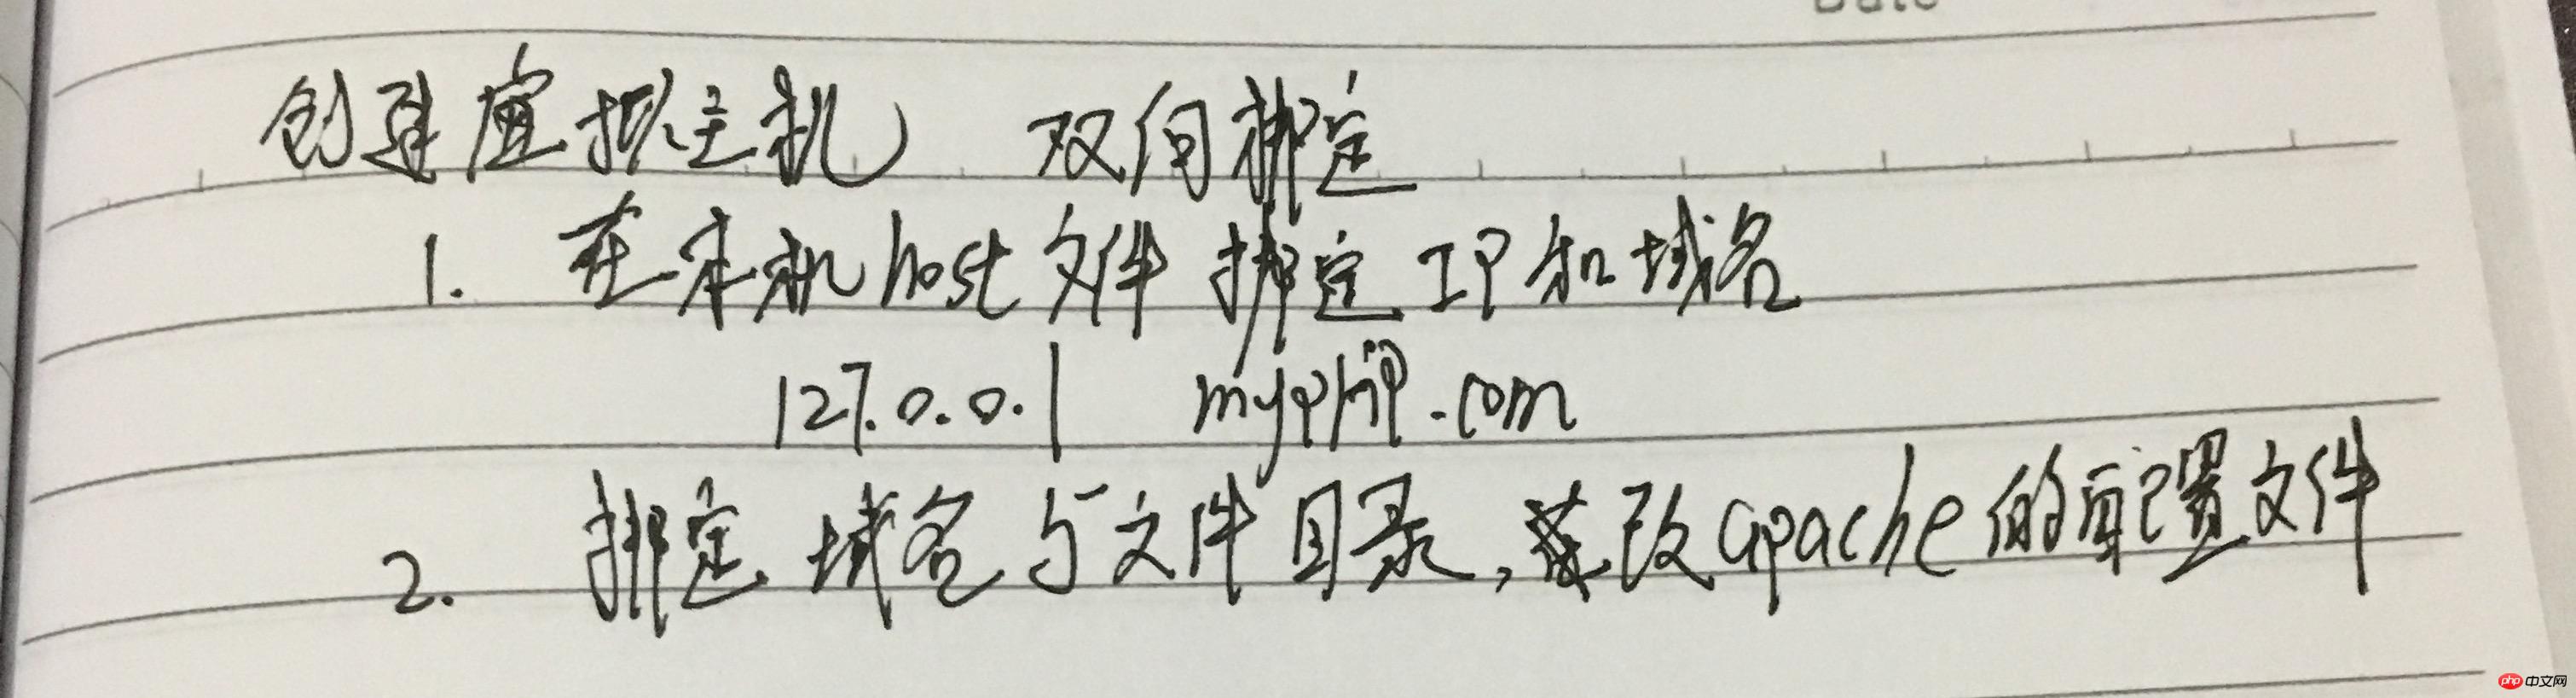 Date
创建虚拟主机 双向绑定
1. 在本机host文件 绑定 IP和域名
127.0.0.1 myphp.com
2. 绑定 域名与文件目录,改apache的配置文件
php 中文网